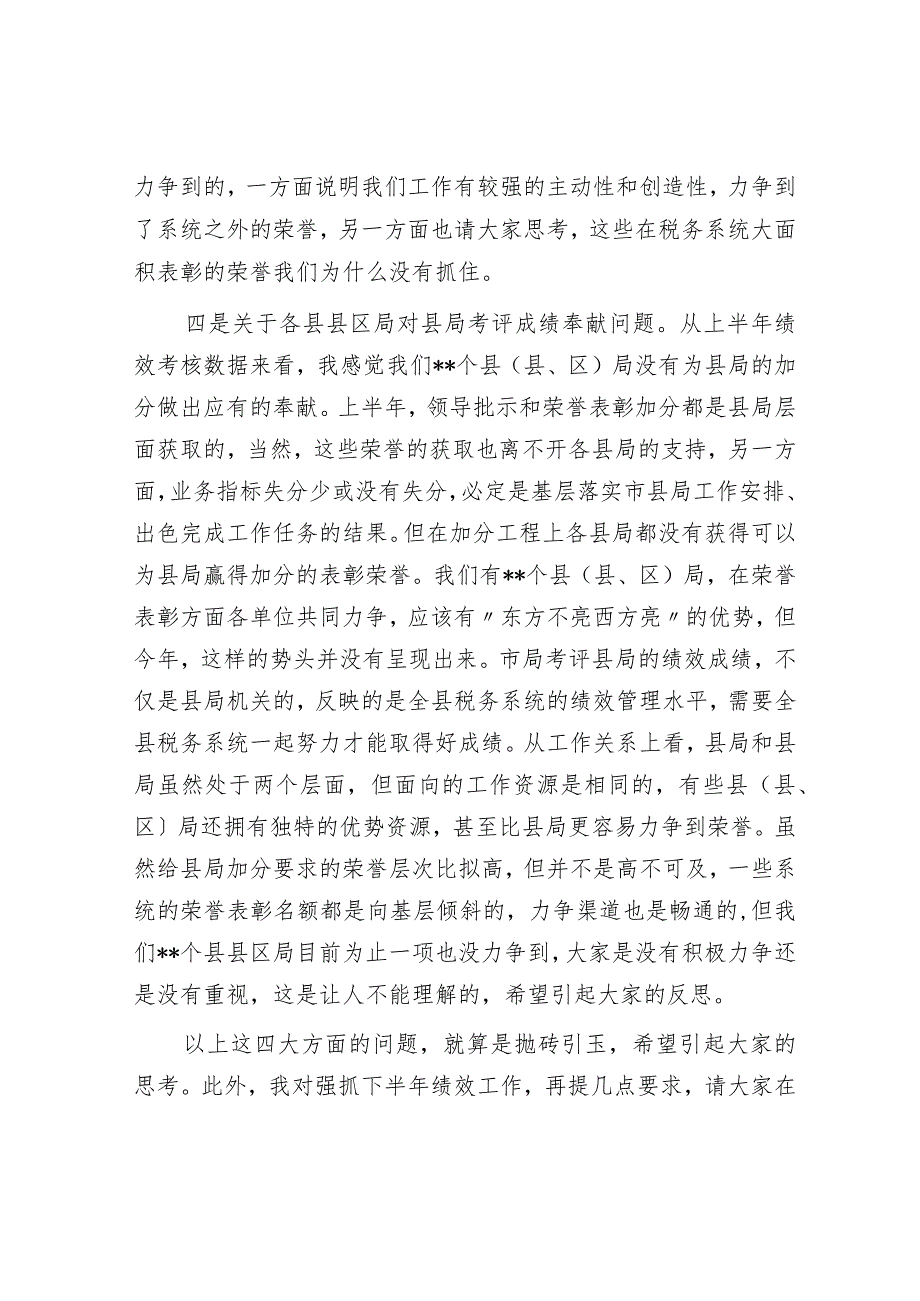 力争到的，一方面说明我们工作有较强的主动性和创造性，力争到
了系统之外的荣誉，另一方面也请大家思考，这些在税务系统大面
积表彰的荣誉我们为什么没有抓住。
四是关于各县县区局对县局考评成绩奉献问题。从上半年绩
效考核数据来看，我感觉我们**个县（县、区）局没有为县局的加
分做出应有的奉献。上半年，领导批示和荣誉表彰加分都是县局层
面获取的，当然，这些荣誉的获取也离不开各县局的支持，另一方
面，业务指标失分少或没有失分，必定是基层落实市县局工作安排、
出色完成工作任务的结果。但在加分工程上各县局都没有获得可以
为县局赢得加分的表彰荣誉。我们有**个县（县、区）局，在荣誉
表彰方面各单位共同力争，应该有〃东方不亮西方亮〃的优势，但
今年，这样的势头并没有呈现出来。市局考评县局的绩效成绩，不
仅是县局机关的，反映的是全县税务系统的绩效管理水平，需要全
县税务系统一起努力才能取得好成绩。从工作关系上看，县局和县
局虽然处于两个层面，但面向的工作资源是相同的，有些县（县、
区〕局还拥有独特的优势资源，甚至比县局更容易力争到荣誉。虽
然给县局加分要求的荣誉层次比拟高，但并不是高不可及，一些系
统的荣誉表彰名额都是向基层倾斜的，力争渠道也是畅通的,但我
们**个县县区局目前为止一项也没力争到，大家是没有积极力争还
是没有重视，这是让人不能理解的，希望引起大家的反思。
以上这四大方面的问题，就算是抛砖引玉，希望引起大家的
思考。此外，我对强抓下半年绩效工作，再提几点要求，请大家在